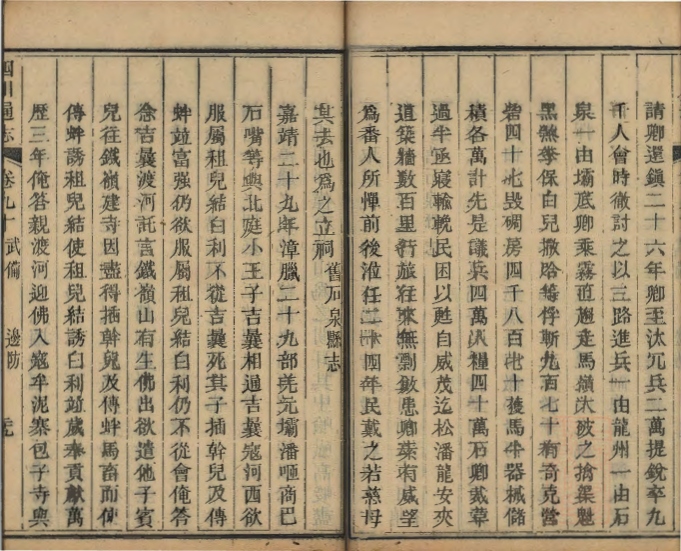 請卿還鎮二十六年卿至汰冗兵二萬提銳卒九
千人會時徹討之以三路進兵一由龍州一由石
泉一由壩底卿乘霧直趨走馬嶺大破之擒渠魁
黑煞拏保白兒撒哈等俘斬九百七十有奇克營
碉四十七毀碉房四千八百七十獲馬牛器械儲
積各萬計先是議兵四萬人糧四十萬石卿裁革
過半亟寢輸輓民困以甦自威茂迄松潘龍安夾
道築牆數百里行旅往來無剽敓患卿素有威望
為番人所憚前後涖任二十四年民戴之若慈母
其去也為之立祠 舊石泉縣志
嘉靖二十九年漳臘二十九部羌元壩潘咂商巴
石嘴等與北庭小王子吉囊相通吉囊寇河西欲
服屬祖兒結臼利不從吉囊死其子插幹兒及傳
蚌竝富强仍欲服屬祖兒結臼利仍不從會俺答
徐吉囊渡河託言鐵嶺山有生佛出欲遣他子賓
兒往鐵嶺建寺因盡得插幹兒及傳蚌馬畜而使
傳蚌誘祖兒結使祖兒結誘臼利竝歲奉貢獻萬
歷三年俺答親渡河迎佛入寇牟泥寨包子寺與
四川通志
卷九十 武備 邊防